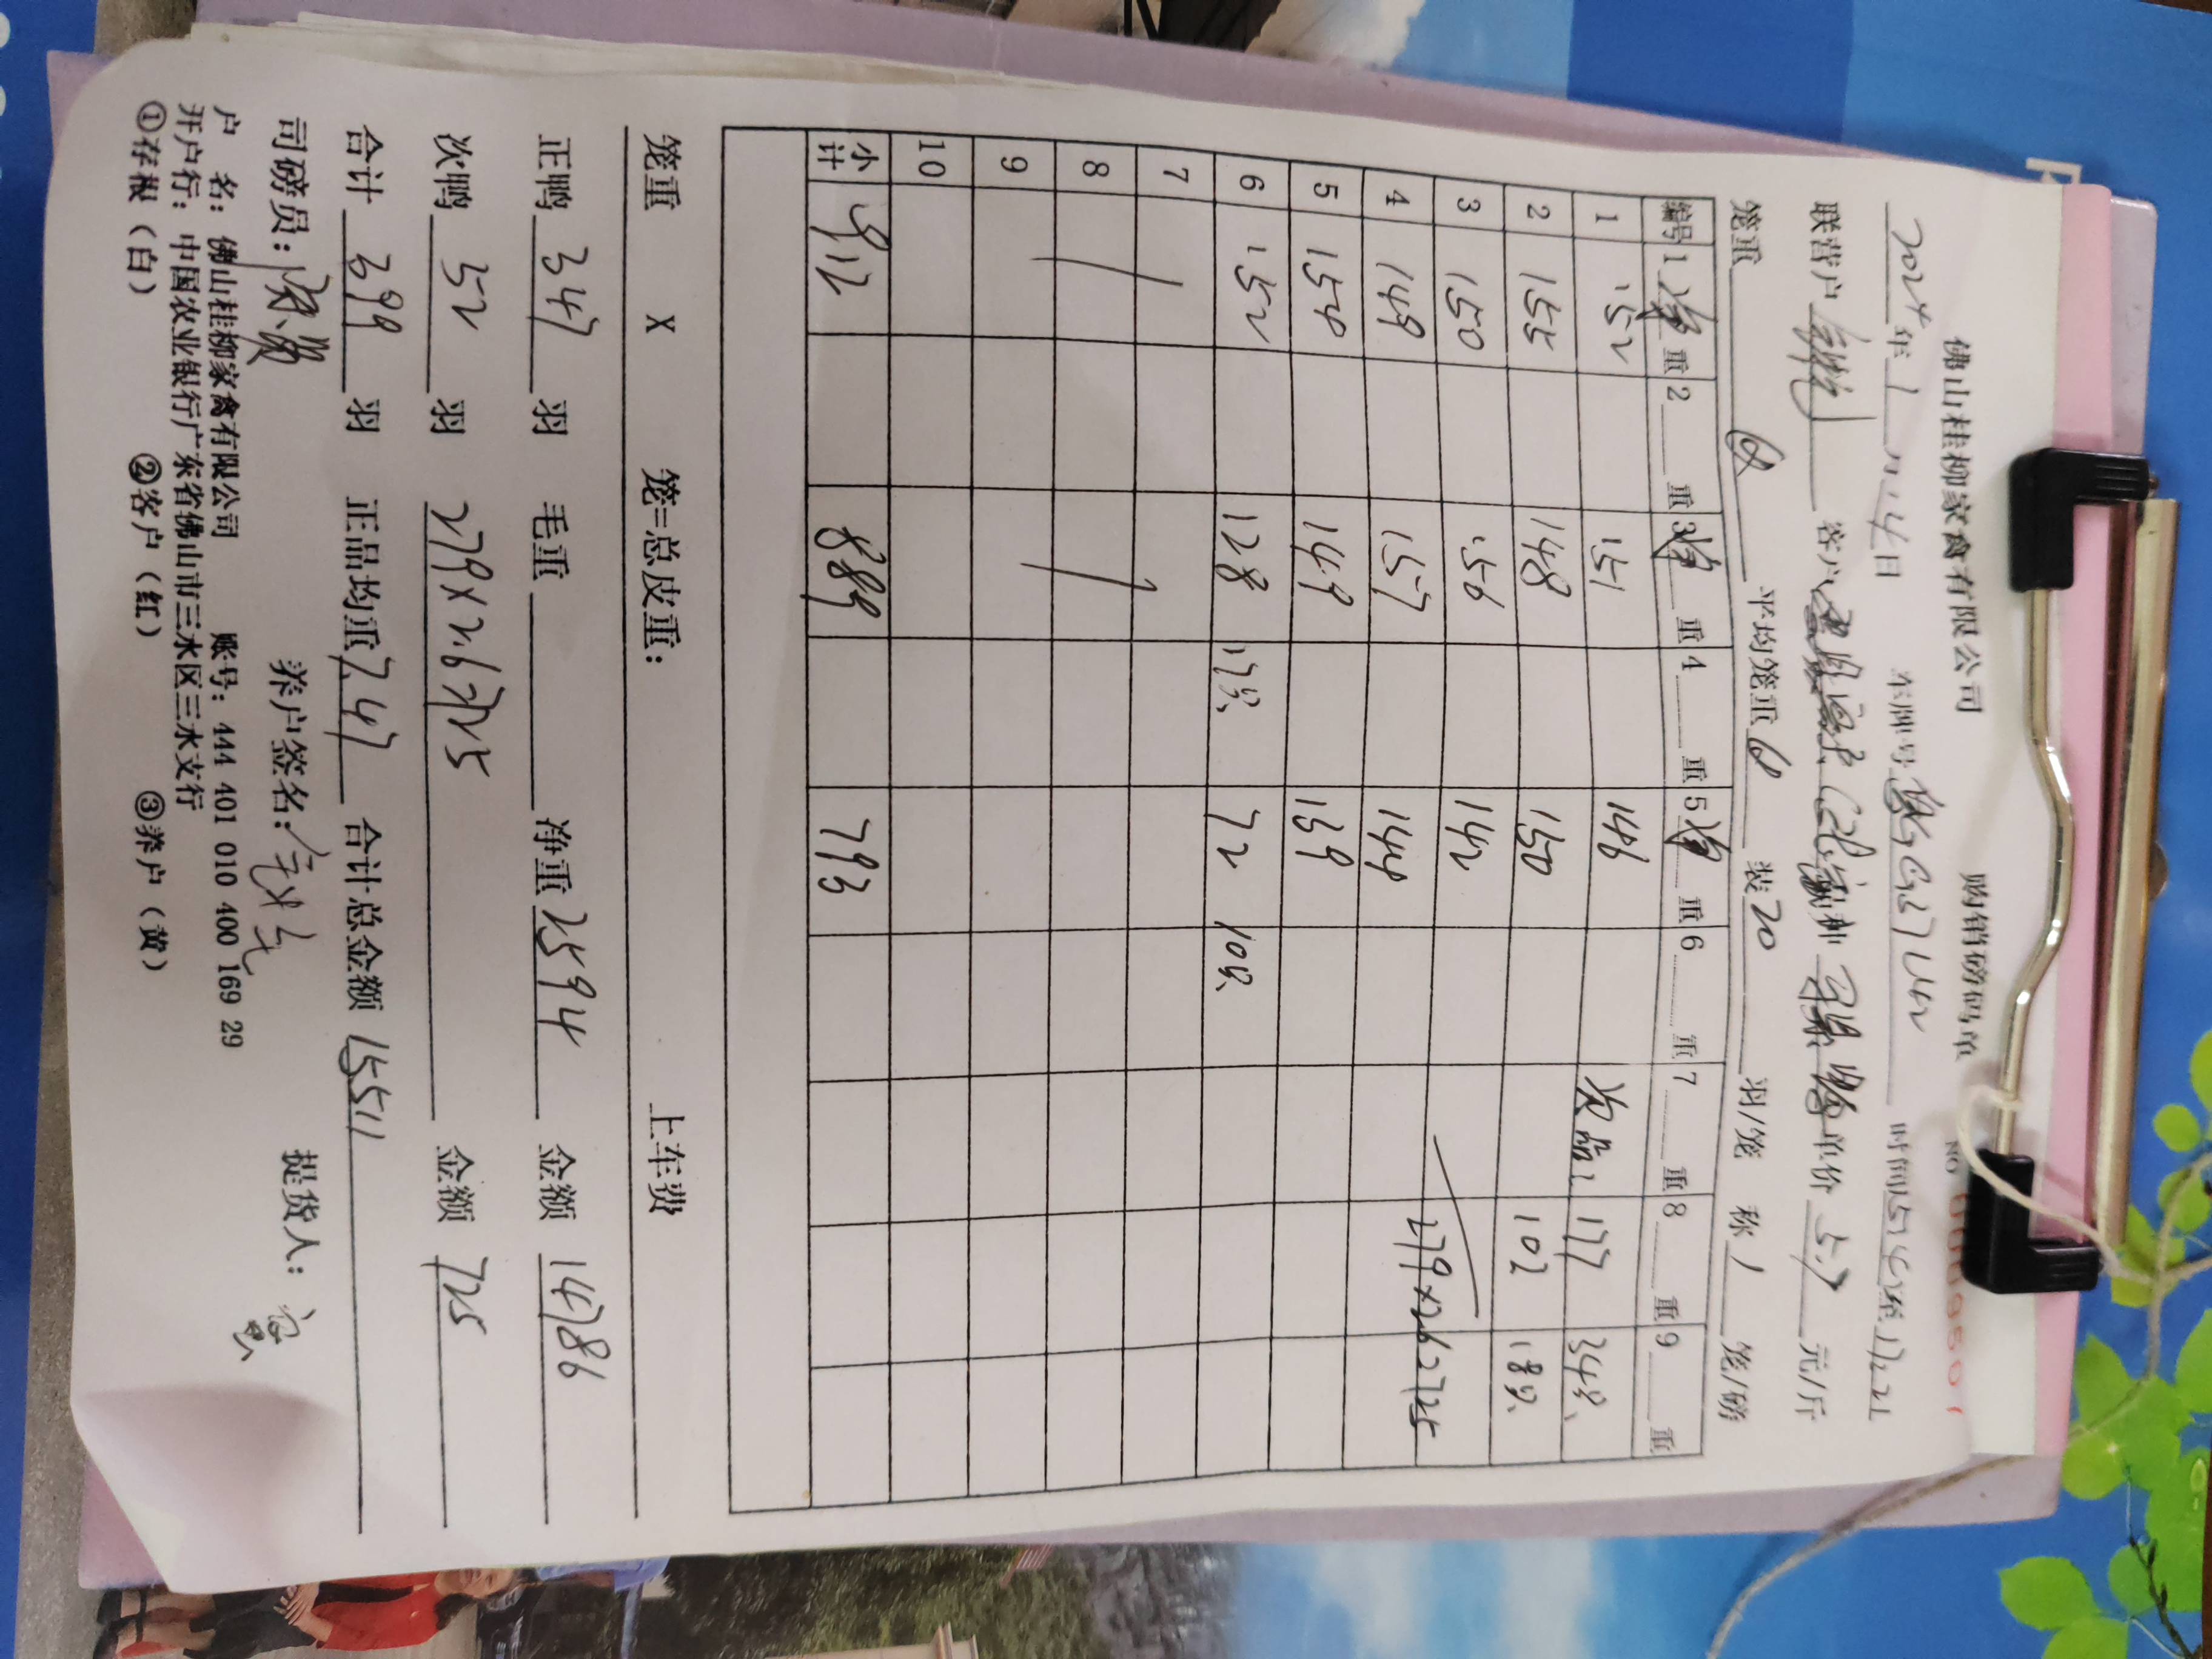 佛山桂柳家禽有限公司 购销磅码单 NO
2024年1月14日 车牌号 时间
联营户 客户 单价5.7元/斤
笼重 平均笼重6 装20羽/笼 称1笼/磅
编号 1 重 2 重 3 重 4 重 5 重 6 重 7 重 8 重 9 重
1 152 151 146 次品: 177 34只
2 155 148 150 102 18只
3 150 156 142
4 149 157 144 279×2.6=725
5 154 149 139
6 152 128 17只 72 10只
7
8
9
10
小计 912 889 793
笼重 X 笼=总皮重: 上车费
正鸭 347 羽 毛重 净重 2594 金额 14786
次鸭 52 羽 279×2.6=725 金额 725
合计 399 羽 正品均重 7.47 合计总金额 15511
司磅员: 养户签名: 提货人:
户 名: 佛山桂柳家禽有限公司 账号: 444 401 010 400 169 29
开户行: 中国农业银行广东省佛山市三水区三水支行
①存根(白) ②客户(红) ③养户(黄)